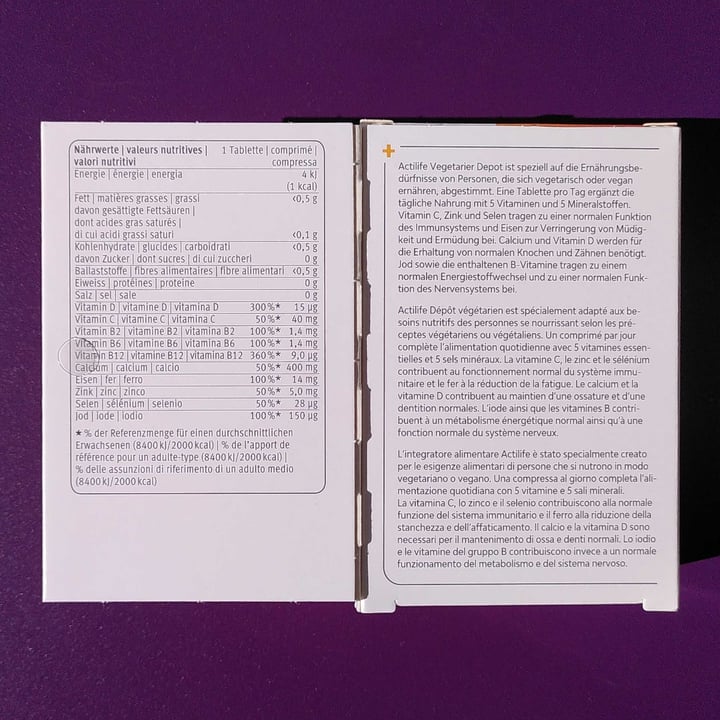 Nährwerte | valeurs nutritives | 1 Tablette | comprimé |
valori nutritivi compressa
Energie | énergie | energia 4 kJ
(1 kcal)
Fett | matières grasses | grassi <0,5 g
davon gesättigte Fettsäuren |
dont acides gras saturés |
di cui acidi grassi saturi <0,1 g
Kohlenhydrate | glucides | carboidrati <0,5 g
davon Zucker | dont sucres | di cui zuccheri 0 g
Ballaststoffe | fibres alimentaires | fibre alimentari <0,5 g
Eiweiss | protéines | proteine 0 g
Salz | sel | sale 0 g
Vitamin D | vitamine D | vitamina D 300%* 15 µg
Vitamin C | vitamine C | vitamina C 50%* 40 mg
Vitamin B2 | vitamine B2 | vitamina B2 100%* 1,4 mg
Vitamin B6 | vitamine B6 | vitamina B6 100%* 1,4 mg
Vitamin B12 | vitamine B12 | vitamina B12 360%* 9,0 µg
Calcium | calcium | calcio 50%* 400 mg
Eisen | fer | ferro 100%* 14 mg
Zink | zinc | zinco 50%* 5,0 mg
Selen | sélénium | selenio 50%* 28 µg
Jod | iode | iodio 100%* 150 µg
* % der Referenzmenge für einen durchschnittlichen
Erwachsenen (8400 kJ/2000 kcal) | % de l'apport de
référence pour un adulte-type (8400 kJ/2000 kcal) |
% delle assunzioni di riferimento di un adulto medio
(8400 kJ/2000 kcal)
Actilife Vegetarier Depot ist speziell auf die Ernährungsbe-
dürfnisse von Personen, die sich vegetarisch oder vegan
ernähren, abgestimmt. Eine Tablette pro Tag ergänzt die
tägliche Nahrung mit 5 Vitaminen und 5 Mineralstoffen.
Vitamin C, Zink und Selen tragen zu einer normalen Funktion
des Immunsystems und Eisen zur Verringerung von Müdig-
keit und Ermüdung bei. Calcium und Vitamin D werden für
die Erhaltung von normalen Knochen und Zähnen benötigt.
Jod sowie die enthaltenen B-Vitamine tragen zu einem
normalen Energiestoffwechsel und zu einer normalen Funk-
tion des Nervensystems bei.
Actilife Dépôt végétarien est spécialement adapté aux be-
soins nutritifs des personnes se nourrissant selon les pré-
ceptes végétariens ou végétaliens. Un comprimé par jour
complète l'alimentation quotidienne avec 5 vitamines essen-
tielles et 5 sels minéraux. La vitamine C, le zinc et le sélénium
contribuent au fonctionnement normal du système immu-
nitaire et le fer à la réduction de la fatigue. Le calcium et la
vitamine D contribuent au maintien d'une ossature et d'une
dentition normales. L'iode ainsi que les vitamines B contri-
buent à un métabolisme énergétique normal ainsi qu'à une
fonction normale du système nerveux.
L'integratore alimentare Actilife è stato specialmente creato
per le esigenze alimentari di persone che si nutrono in modo
vegetariano o vegano. Una compressa al giorno completa l'ali-
mentazione quotidiana con 5 vitamine e 5 sali minerali.
La vitamina C, lo zinco e il selenio contribuiscono alla normale
funzione del sistema immunitario e il ferro alla riduzione della
stanchezza e dell'affaticamento. Il calcio e la vitamina D sono
necessari per il mantenimento di ossa e denti normali. Lo iodio
e le vitamine del gruppo B contribuiscono invece a un normale
funzionamento del metabolismo e del sistema nervoso.